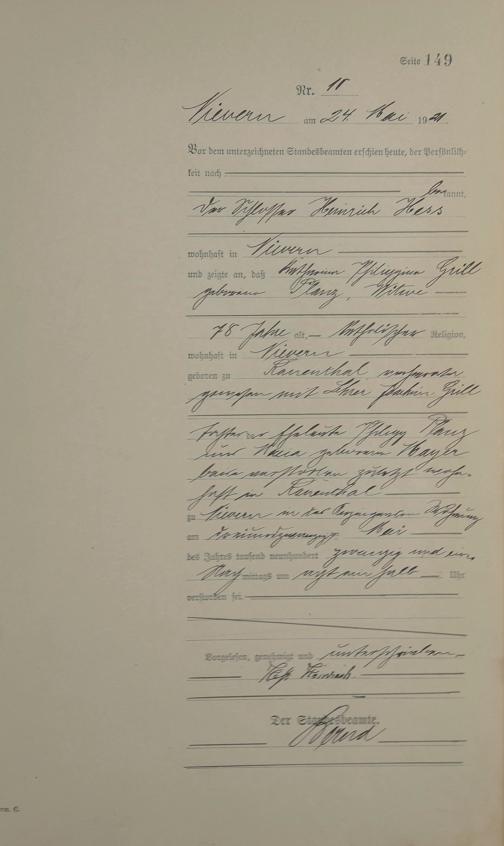 Seite 149
Nr. 18
Nievern am 24. Mai 1921
Vor dem unterzeichneten Standesbeamten erschien heute, der Persönlich-
keit nach
bekannt,
der Schlosser Heinrich Hess
wohnhaft in Nievern
und zeigte an, daß Katharina Philippina Grill
geborene Planz, Witwe
78 Jahre alt, Katholischer Religion,
wohnhaft in Nievern
geboren zu Rauenthal verheiratet
gewesen mit Joachim Grill
Tochter der Eheleute Philipp Planz
und Maria geborene Mayer
beide verstorben zuletzt wohn-
haft in Rauenthal
zu Nievern in der Wohnung
am dreiundzwanzigst Mai
des Jahres tausend neunhundert zwanzig und ein
Nachmittags um acht ein halb Uhr
verstorben sei.
Vorgelesen, genehmigt und unterschrieben.
Hess Heinrich
Der Standesbeamte.